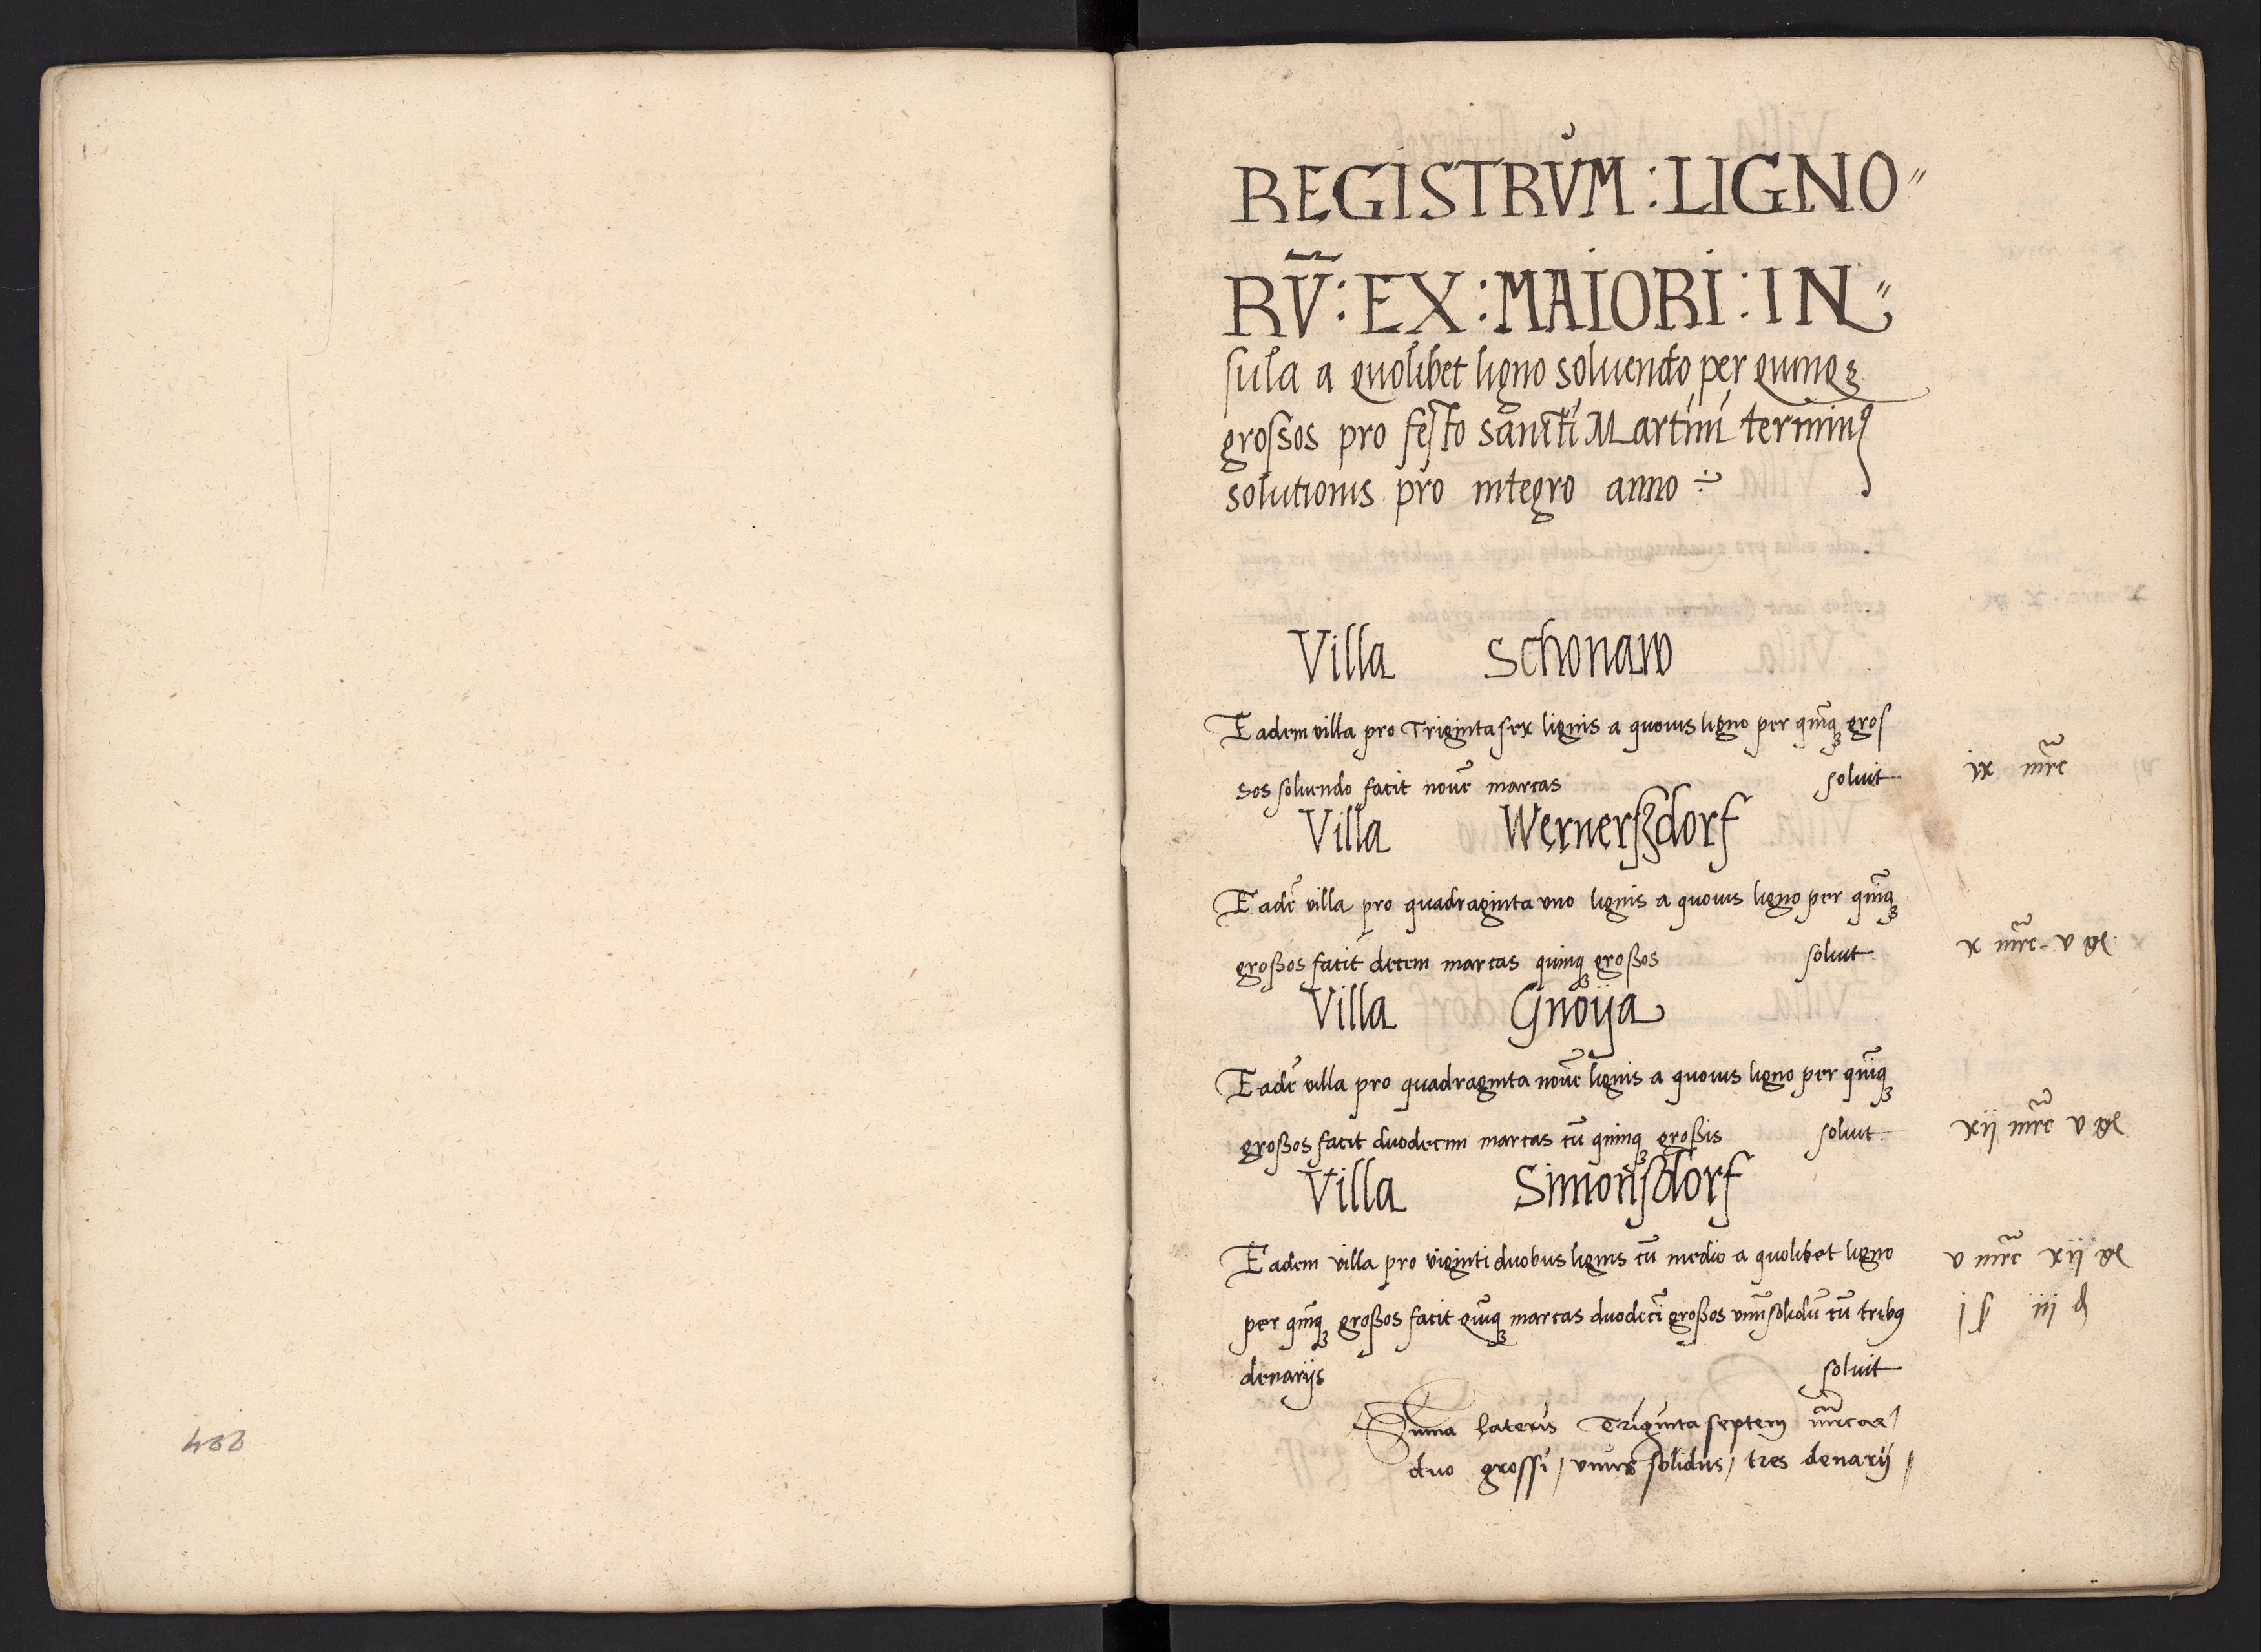 REGISTRVM : LIGNO"
RV̄ : EX : MAIORI : IN"
sula a quolibet ligno soluendo per quinqꝫ
grossos pro festo sancti Martini terminꝰ
solutionis pro integro anno
Villa Schonaw
Eadem villa pro Triginta sex lignis a quouis ligno per qu̅iqꝫ gros
sos soluendo facit noue̅ marcas soluit ix mrc̅
Villa Wernerßdorf
Eade̅ villa pro quadraginta vno lignis a quouis ligno per qu̅iqꝫ
großos facit decem marcas quinqꝫ großos soluit x mrc̅ v gͬ
Villa Gnoija
Eade̅ villa pro quadraginta noue̅ lignis a quouis ligno per qu̅iqꝫ
großos facit duodecim marcas cu̅ quinqꝫ großis soluit xij mrc̅ v gͬ
Villa Simonsdorf
Eadem villa pro viginti duobus lignis cu̅ medio a quolibet ligno v mrc̅ xij gͬ
per qu̅iqꝫ großos facit qui̅qꝫ marcas duodeci̅ großos vnu̅ solidu̅ cu̅ tribꝰ j ß iij ₰
denarijs soluit
Su̅ma lateris Triginta septem mrcae /
duo grossi / vnus solidus / tres denarij /
224